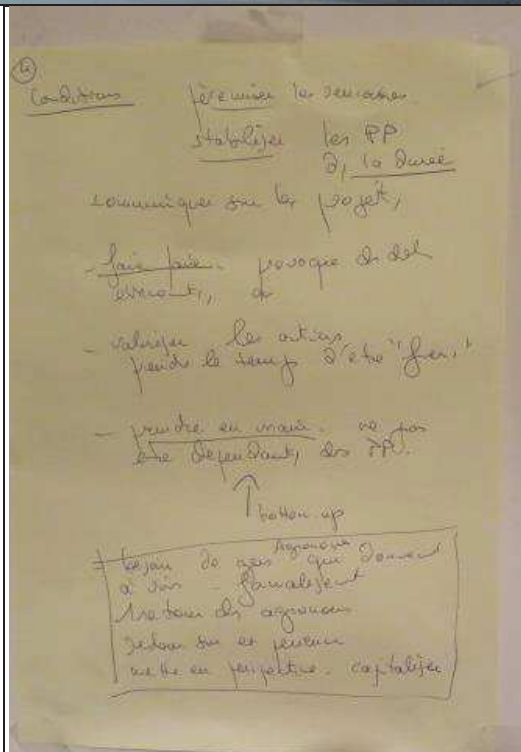 Conditions pérenniser les
stabiliser les PP
ds la durée
communiquer sur les projets,
- faire faire. provoque des
- valoriser les actions
prendre le temps d'être "fiers"
- prendre en main. ne pas
être dépendants des PP.
bottom-up
= besoin de gens Agronomes qui donnent
à voir - formalisent
retour des agronomes
retour sur et
mettre en perspective. capitaliser